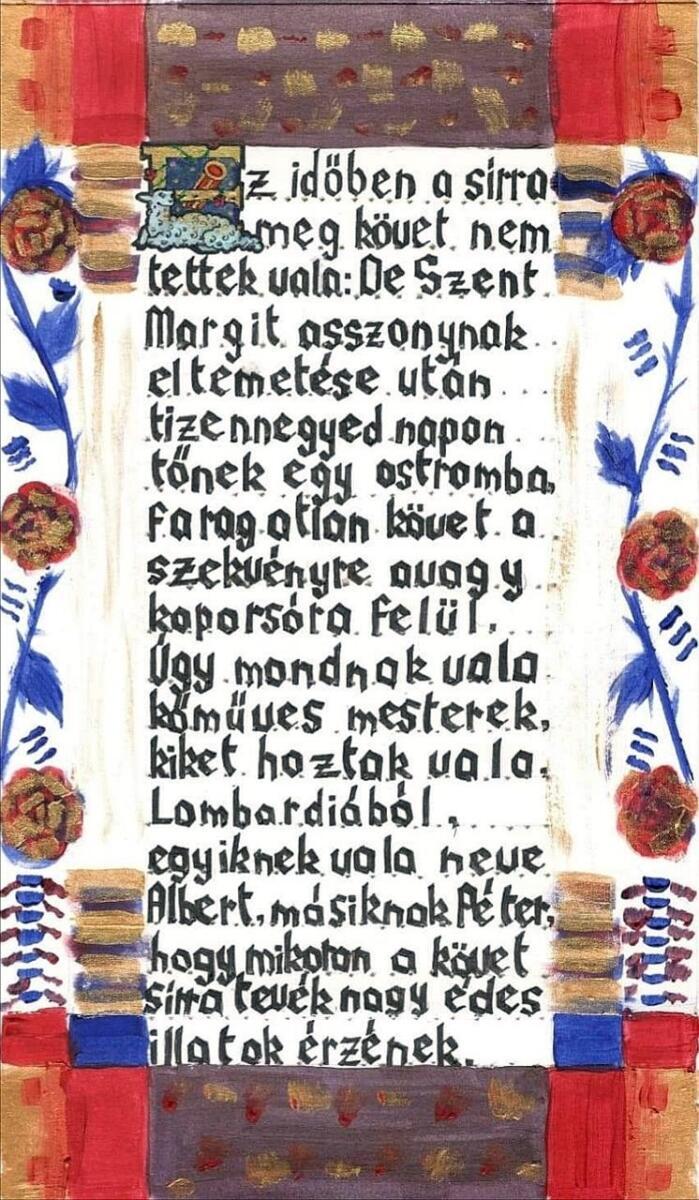 Ez időben a sirra
meg követ nem
tettek vala: De Szent
Margit asszonynak
eltemetése után
tizennegyed napon
tőnek egy ostromba,
faragatlan követ a
szekvényre avagy
koporsóra felül.
Úgy mondnak vala
kőműves mesterek,
kiket hoztak vala.
Lombardiából.
egyiknek vala neve
Albert, másiknak Péter,
hogy mikoron a követ
sirra tevék nagy édes
illatok érzének.